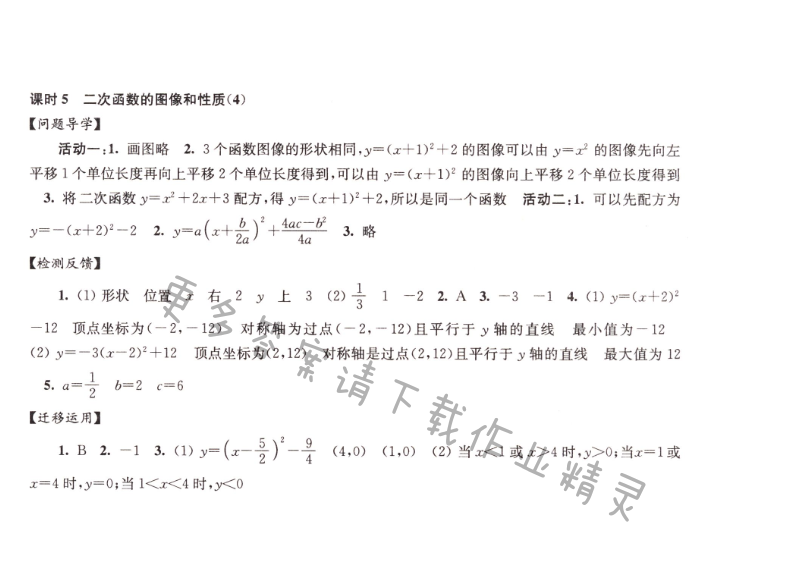 课时5 二次函数的图像和性质(4)
【问题导学】
活动一:1. 画图略 2. 3个函数图像的形状相同,y=(x+1)²+2的图像可以由y=x²的图像先向左
平移1个单位长度再向上平移2个单位长度得到,可以由y=(x+1)²的图像向上平移2个单位长度得到
3. 将二次函数y=x²+2x+3配方,得y=(x+1)²+2,所以是同一个函数 活动二:1. 可以先配方为
y=-(x+2)²-2 2. y=a(x+b/2a)²+(4ac-b²)/4a 3. 略
【检测反馈】
1. (1) 形状 位置 x 右 2 y 上 3 (2) 1/3 1 -2 2. A 3. -3 -1 4. (1) y=(x+2)²
-12 顶点坐标为(-2,-12) 对称轴为过点(-2,-12)且平行于y轴的直线 最小值为-12
(2) y=-3(x-2)²+12 顶点坐标为(2,12) 对称轴是过点(2,12)且平行于y轴的直线 最大值为12
5. a=1/2 b=2 c=6
【迁移运用】
1. B 2. -1 3. (1) y=(x-5/2)²-9/4 (4,0) (1,0) (2) 当x<1或x>4时,y>0;当x=1或
x=4时,y=0;当1<x<4时,y<0
更多答案请下载作业精灵